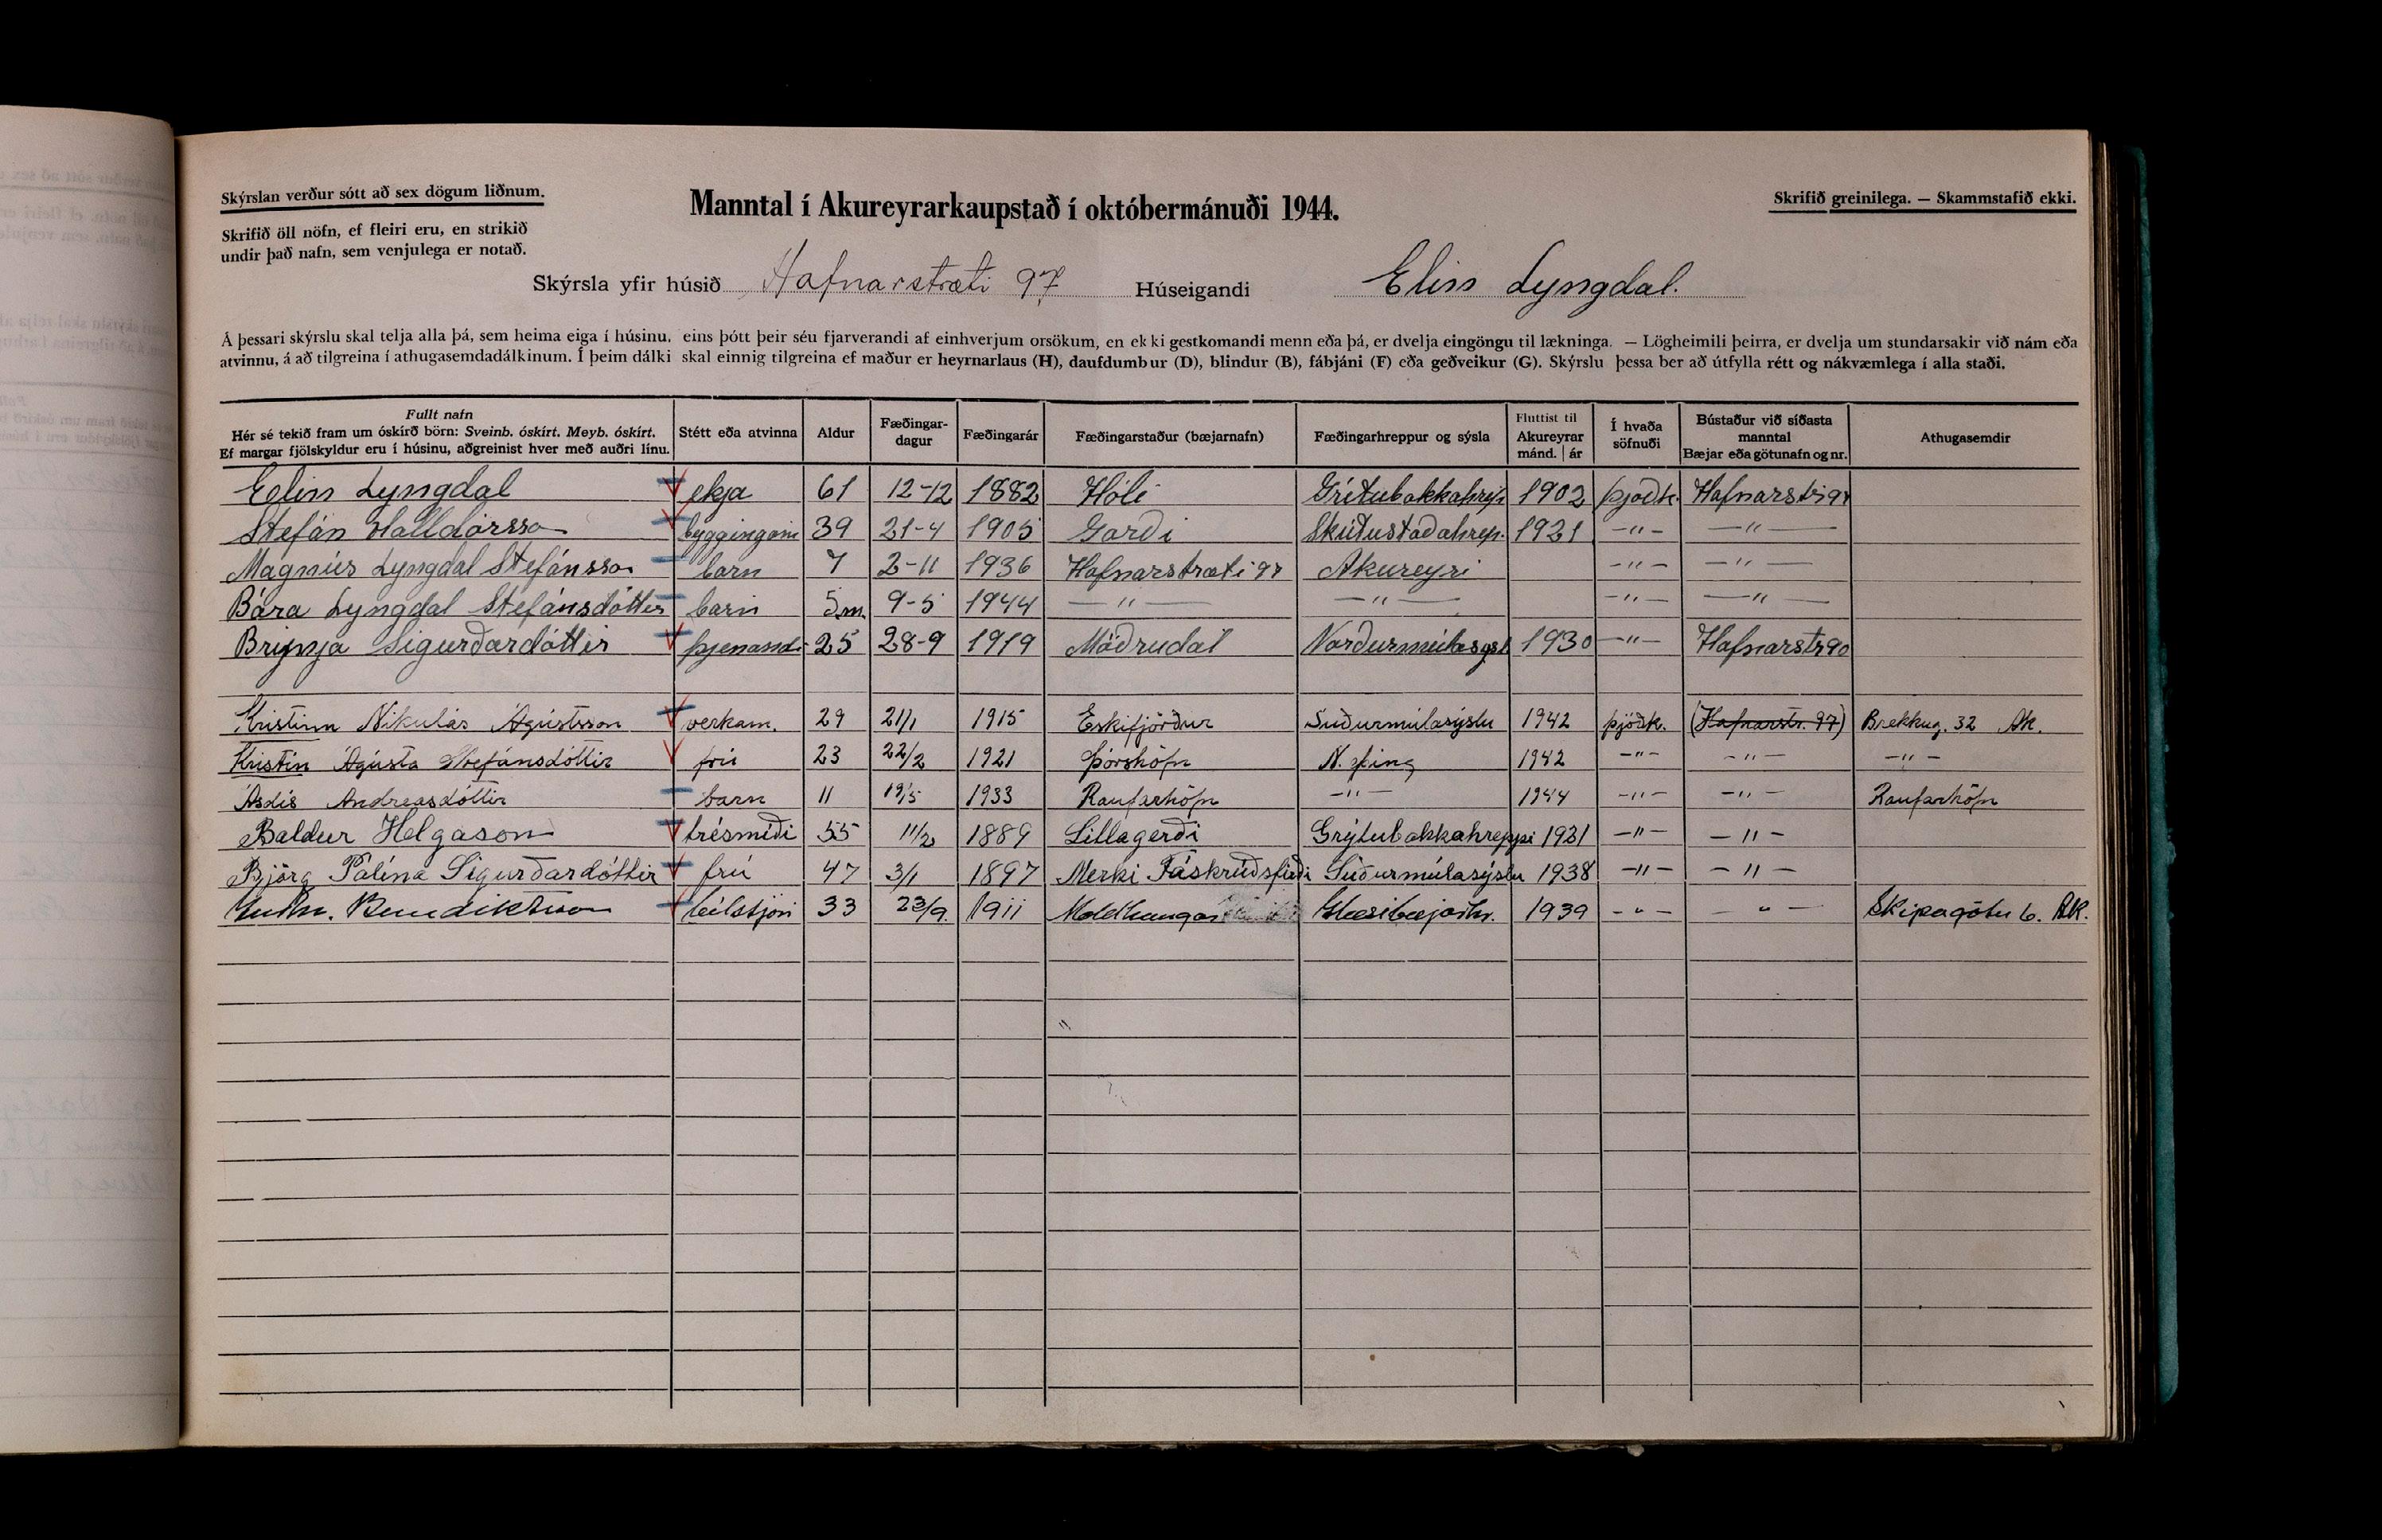 Skýrslan verður sótt að sex dögum liðnum.
Manntal í Akureyrarkaupstað í októbermánuði 1944.
Skrifið greinilega. — Skammstafið ekki.
Skrifið öll nöfn, ef fleiri eru, en strikið
undir það nafn, sem venjulega er notað.
Skýrsla yfir húsið Hafnarstræti 97 Húseigandi Elin Lyngdal.
Á þessari skýrslu skal telja alla þá, sem heima eiga í húsinu, eins þótt þeir séu fjarverandi af einhverjum orsökum, en ekki gestkomandi menn eða þá, er dvelja eingöngu til lækninga. — Lögheimili þeirra, er dvelja um stundarsakir við nám eða
atvinnu, á að tilgreina í athugasemdadálkinum. Í þeim dálki skal einnig tilgreina ef maður er heyrnarlaus (H), daufdumbur (D), blindur (B), fábjáni (F) eða geðveikur (G). Skýrslu þessa ber að útfylla rétt og nákvæmlega í alla staði.
Fullt nafn
Hér sé tekið fram um óskírð börn: Sveinb. óskírt. Meyb. óskírt.
Ef margar fjölskyldur eru í húsinu, aðgreinist hver með auðri línu.
Stétt eða atvinna
Aldur
Fæðingar-
dagur
Fæðingarár
Fæðingarstaður (bæjarnafn)
Fæðingarhreppur og sýsla
Fluttist til
Akureyrar
mánd. | ár
Í hvaða
söfnuði
Bústaður við síðasta
manntal
Bæjar eða götunafn og nr.
Athugasemdir
Elin Lyngdal ekja 61 12-12 1882 Hóli Grítubakkahrep 1902 þjóðk. Hafnarstr 97
Stefán Halldórsson 39 21-4 1905 Garði Skútustaðahrep. 1921 —"— —"—
Magnús Lyngdal Stefánsson barn 7 2-11 1936 Hafnarstræti 97 Akureyri —"— —"—
Bára Lyngdal Stefánsdóttir barn 5m. 9-5 1944 —"— —"— —"— —"—
Brynja Sigurðardóttir þjenandi 25 28-9 1919 Möðrudal Norðurmúlasysl 1930 —"— Hafnarstr 90
Kristinn Nikulás Ágústsson verkam. 29 21/1 1915 Eskifjörður Suðurmúlasýslu 1942 þjóðk. (Hafnarstr. 97) Brekkug. 32 Ak.
Kristín Ágústa Stefánsdóttir frú 23 22/2 1921 Þórshöfn N. þing 1942 —"— —"— —"—
Ásdís Andreasdóttir barn 11 19/5 1933 Raufarhöfn —"— 1944 —"— —"— Raufarhöfn
Baldur Helgason trésmiði 55 11/2 1889 Litlagerði Grýtubakkahreppi 1931 —"— —"—
Björg Pálína Sigurðardóttir frú 47 3/1 1897 Merki Fáskrúðsfirði Suðurmúlasýslu 1938 —"— —"—
Guðm. Benediktsson bílstjóri 33 23/9 1911 Moldhaugar Glæsibæjarhr. 1939 —"— —"— Skipagötu 6. AK.